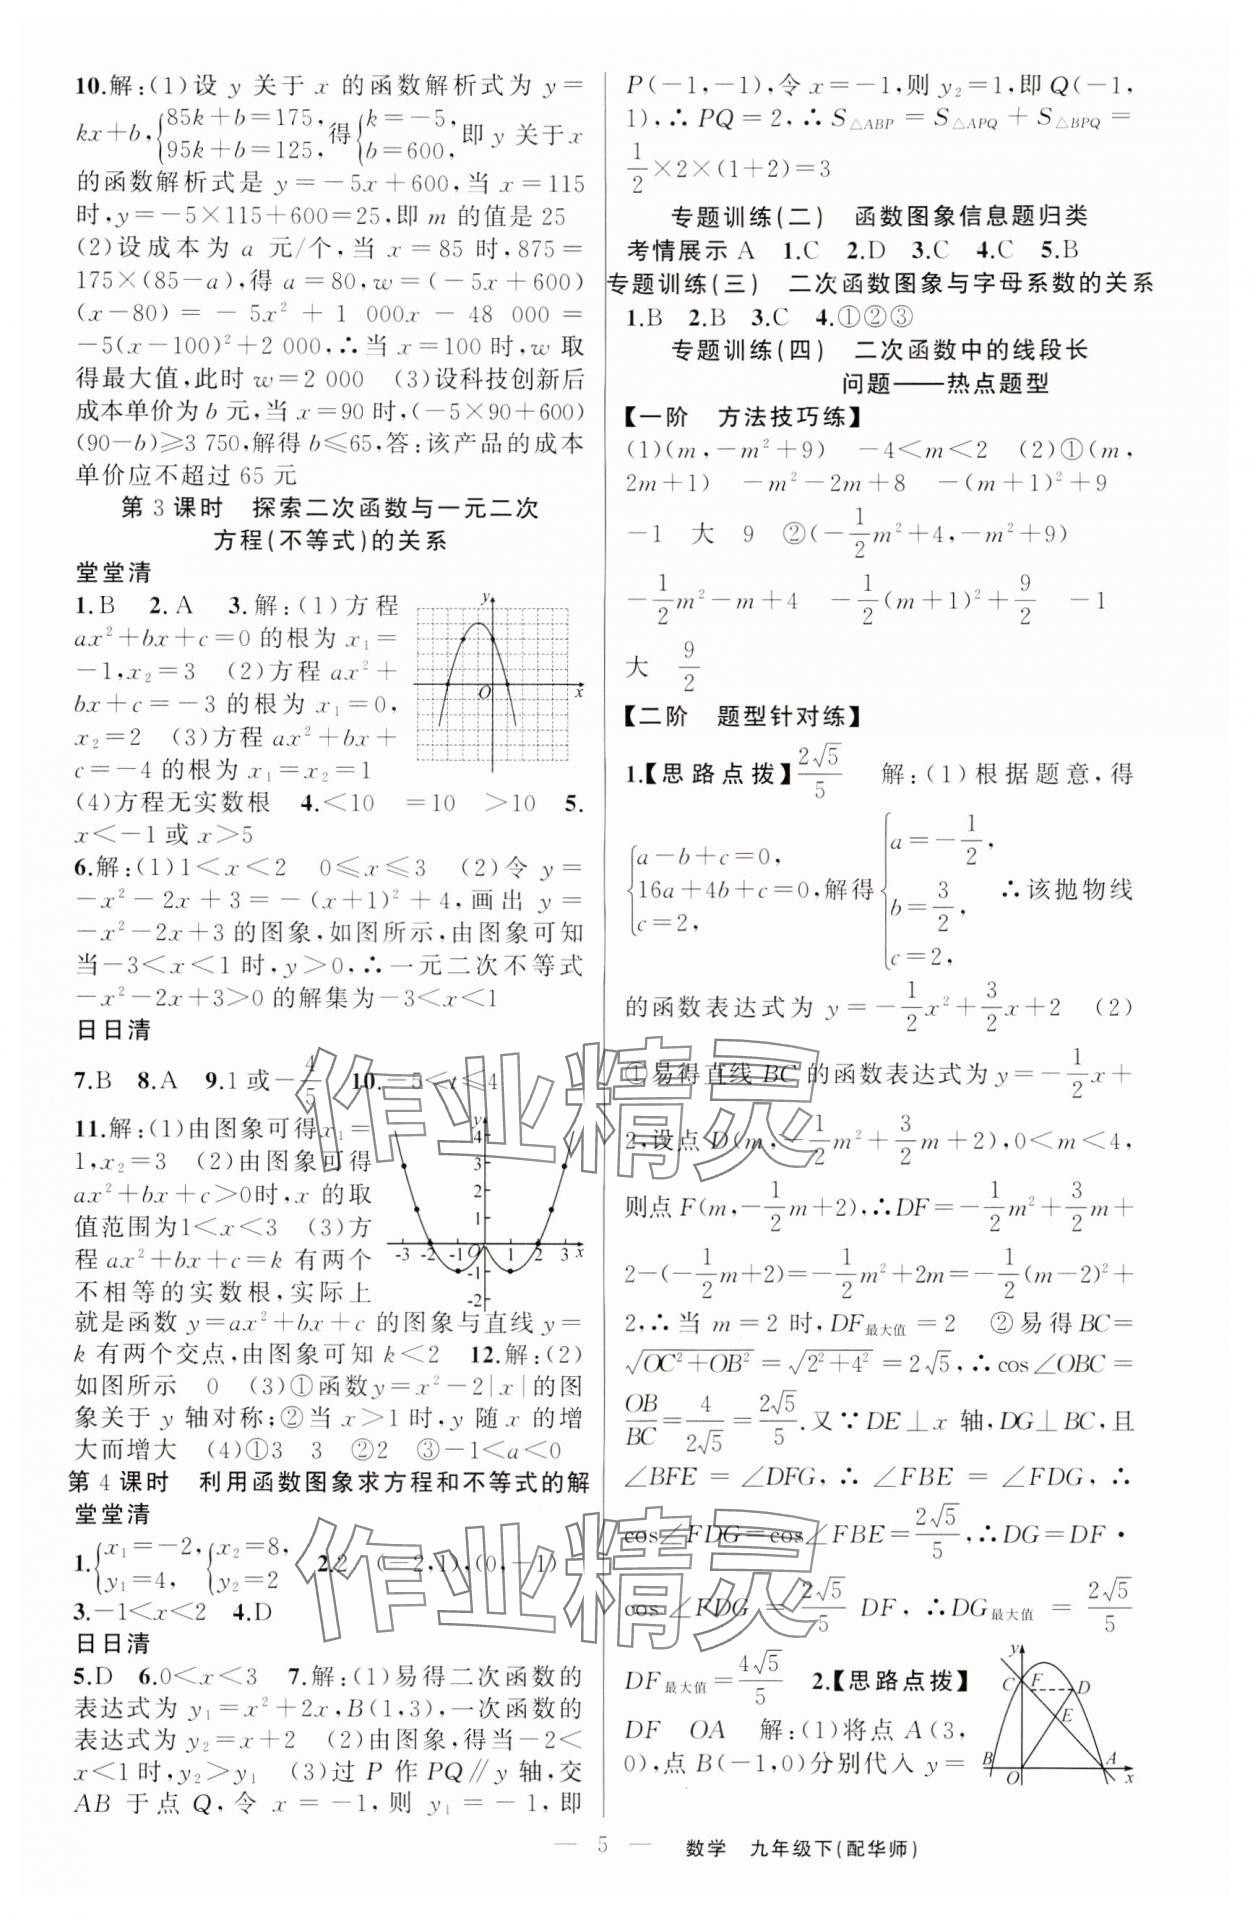 10.解:(1)设 y 关于 x 的函数解析式为 y=
kx+b,{85k+b=175, 95k+b=125,得{k=-5, b=600,即 y 关于 x
的函数解析式是 y=-5x+600,当 x=115
时,y=-5×115+600=25,即 m 的值是 25
(2)设成本为 a 元/个,当 x=85 时,875=
175×(85-a),得 a=80,w=(-5x+600)
(x-80)=-5x²+1 000x-48 000=
-5(x-100)²+2 000,∴当 x=100 时,w 取
得最大值,此时 w=2 000 (3)设科技创新后
成本单价为 b 元,当 x=90 时,(-5×90+600)
(90-b)≥3 750,解得 b≤65,答:该产品的成本
单价应不超过 65 元
第 3 课时 探索二次函数与一元二次
方程(不等式)的关系
堂堂清
1.B 2.A 3.解:(1)方程
ax²+bx+c=0 的根为 x₁=
-1,x₂=3 (2)方程 ax²+
bx+c=-3 的根为 x₁=0,
x₂=2 (3)方程 ax²+bx+
c=-4 的根为 x₁=x₂=1
y
O
x
(4)方程无实数根 4.<10 =10 >10 5.
x<-1 或 x>5
6.解:(1)1<x<2 0≤x≤3 (2)令 y=
-x²-2x+3=-(x+1)²+4,画出 y=
-x²-2x+3 的图象,如图所示,由图象可知
当-3<x<1 时,y>0,∴一元二次不等式
-x²-2x+3>0 的解集为-3<x<1
日日清
7.B 8.A 9.1 或-4/5 10.-5<t≤4
11.解:(1)由图象可得 x₁=
1,x₂=3 (2)由图象可得
ax²+bx+c>0时,x 的取
值范围为1<x<3 (3)方
程 ax²+bx+c=k 有两个
不相等的实数根,实际上
y
4
3
2
1
-3 -2 -1 O 1 2 3 x
-1
-2
就是函数 y=ax²+bx+c 的图象与直线 y=
k 有两个交点,由图象可知 k<2 12.解:(2)
如图所示 0 (3)①函数y=x²-2|x|的图
象关于 y 轴对称;②当 x>1 时,y 随 x 的增
大而增大 (4)①3 3 ②2 ③-1<a<0
第 4 课时 利用函数图象求方程和不等式的解
堂堂清
1.{x₁=-2, y₁=4, {x₂=8, y₂=2 2.2 (-2,1),(0,-1)
3.-1<x<2 4.D
日日清
5.D 6.0<x<3 7.解:(1)易得二次函数的
表达式为 y₁=x²+2x,B(1,3),一次函数的
表达式为 y₂=x+2 (2)由图象,得当-2<
x<1时,y₂>y₁ (3)过 P 作 PQ∥y 轴,交
AB 于点 Q,令 x=-1,则 y₁=-1,即
P(-1,-1),令 x=-1,则 y₂=1,即 Q(-1,
1),∴PQ=2,∴S△ABP=S△APQ+S△BPQ=
1/2×2×(1+2)=3
专题训练(二) 函数图象信息题归类
考情展示 A 1.C 2.D 3.C 4.C 5.B
专题训练(三) 二次函数图象与字母系数的关系
1.B 2.B 3.C 4.①②③
专题训练(四) 二次函数中的线段长
问题——热点题型
【一阶 方法技巧练】
(1)(m,-m²+9) -4<m<2 (2)①(m,
2m+1) -m²-2m+8 -(m+1)²+9
-1 大 9 ②(-1/2m²+4,-m²+9)
-1/2m²-m+4 -1/2(m+1)²+9/2 -1
大 9/2
【二阶 题型针对练】
1.【思路点拨】2√5/5 解:(1)根据题意,得
{a-b+c=0, 16a+4b+c=0, c=2,解得{a=-1/2, b=3/2, c=2,∴该抛物线
的函数表达式为 y=-1/2x²+3/2x+2 (2)
①易得直线 BC 的函数表达式为 y=-1/2x+
2,设点 D(m,-1/2m²+3/2m+2),0<m<4,
则点 F(m,-1/2m+2),∴DF=-1/2m²+3/2m+
2-(-1/2m+2)=-1/2m²+2m=-1/2(m-2)²+
2,∴当 m=2 时,DF最大值=2 ②易得BC=
√OC²+OB²=√2²+4²=2√5,∴cos∠OBC=
OB/BC=4/2√5=2√5/5.又∵DE⊥x 轴,DG⊥BC,且
∠BFE=∠DFG,∴∠FBE=∠FDG,∴
cos∠FDG=cos∠FBE=2√5/5,∴DG=DF·
cos∠FDG=2√5/5 DF,∴DG最大值=2√5/5
DF最大值=4√5/5 2.【思路点拨】
DF OA 解:(1)将点 A(3,
0),点 B(-1,0)分别代入 y=
y
C F D
E
B O A x
— 5 — 数学 九年级下(配华师)
作业精灵
作业精灵